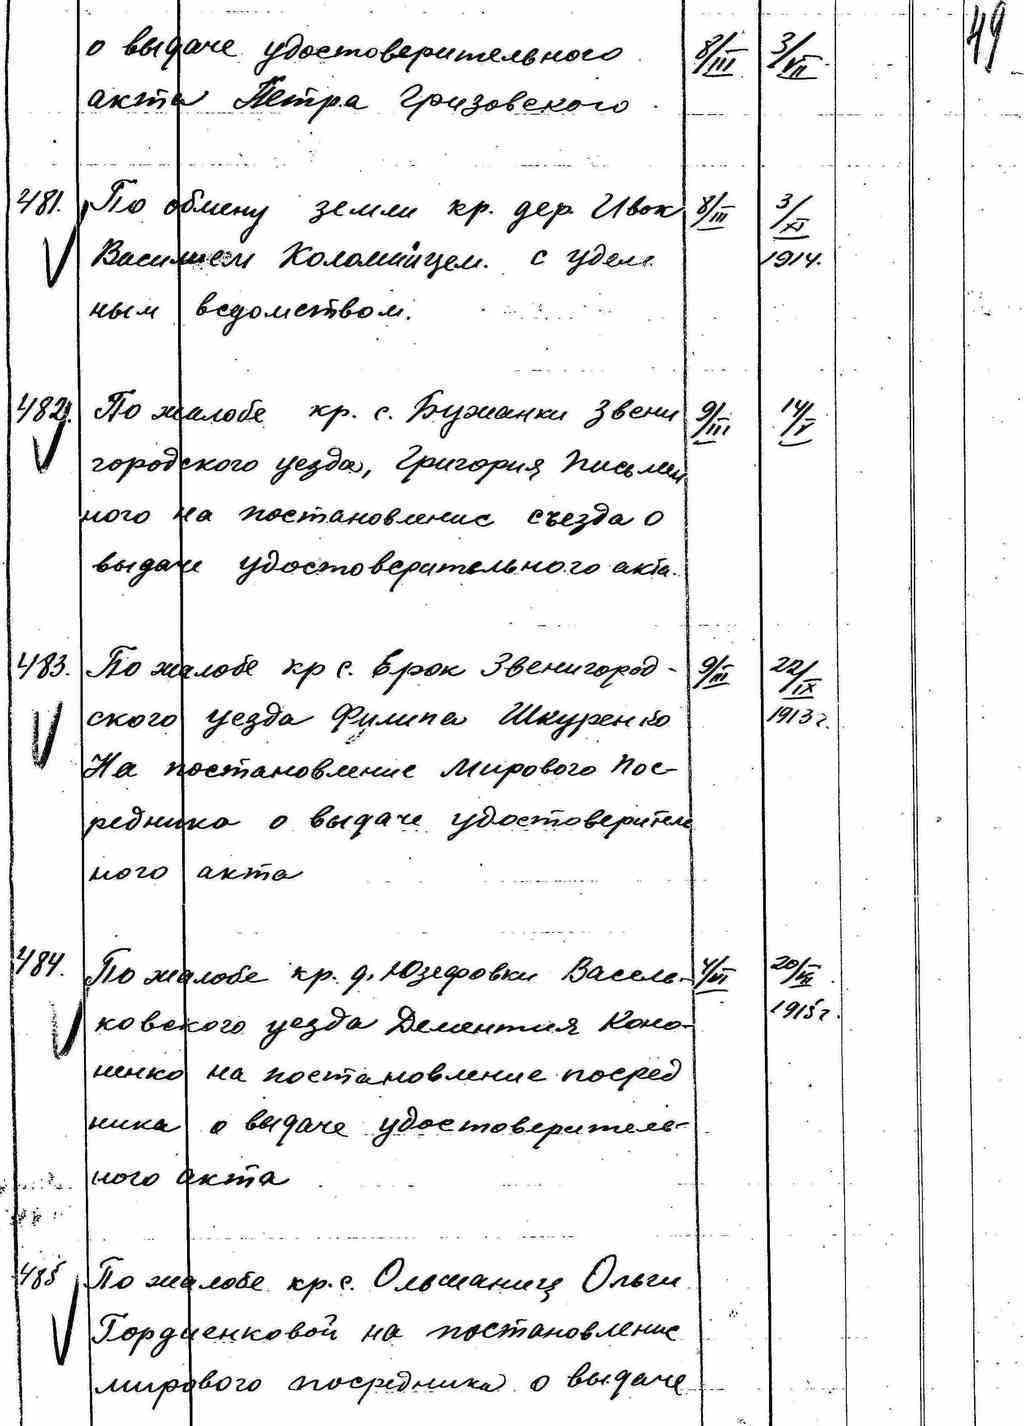 49
о выдаче удостоверительного 8/III 3/VII
акта Петра Гризовского
481. По обмену земли кр. дер. Ивок 8/III 3/XI
Василием Коломийцем. с удель 1914.
ным ведомством.
482. По жалобе кр. с. Бужанки Звени 9/III 14/V
городского уезда, Григория Письмен
ного на постановление съезда о
выдаче удостоверительного акта.
483. По жалобе кр с. Ерок Звенигород- 9/III 22/IX
ского уезда Филипа Шкуренко 1913 г.
На постановление Мирового Пос-
редника о выдаче удостоверитель
ного акта
484. По жалобе кр. д. Юзефовки Василь- 4/VI 20/VII
ковского уезда Дементия Коно- 1915 г.
ненко на постановление посред
ника о выдаче удостоверитель-
ного акта
485 По жалобе кр. с. Ольшаниц Ольги
Гордиенковой на постановление
мирового посредника о выдаче